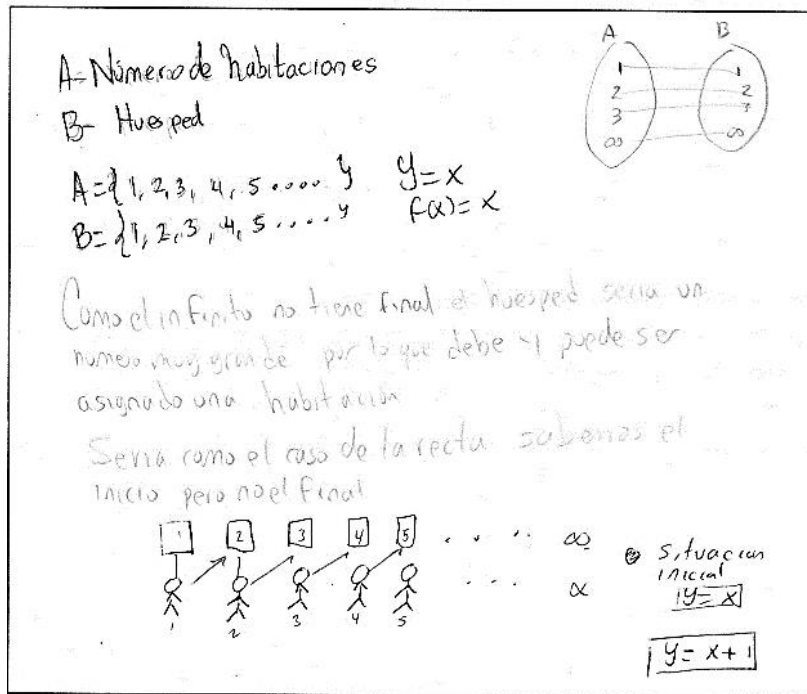 A B
A- Número de habitaciones
B- Huesped
1 1
2 2
3 3
∞ ∞
A={1, 2, 3, 4, 5 ..... } y=x
B={1, 2, 3, 4, 5 .... } f(x)=x
Como el infinito no tiene final el huesped seria un
numero muy grande por lo que debe y puede ser
asignado una habitación
Seria como el caso de la recta sabemos el
inicio pero no el final
1 2 3 4 5 . . . . ∞
. . . . ∝
1 2 3 4 5
situacion
inicial
y=x
y=x+1